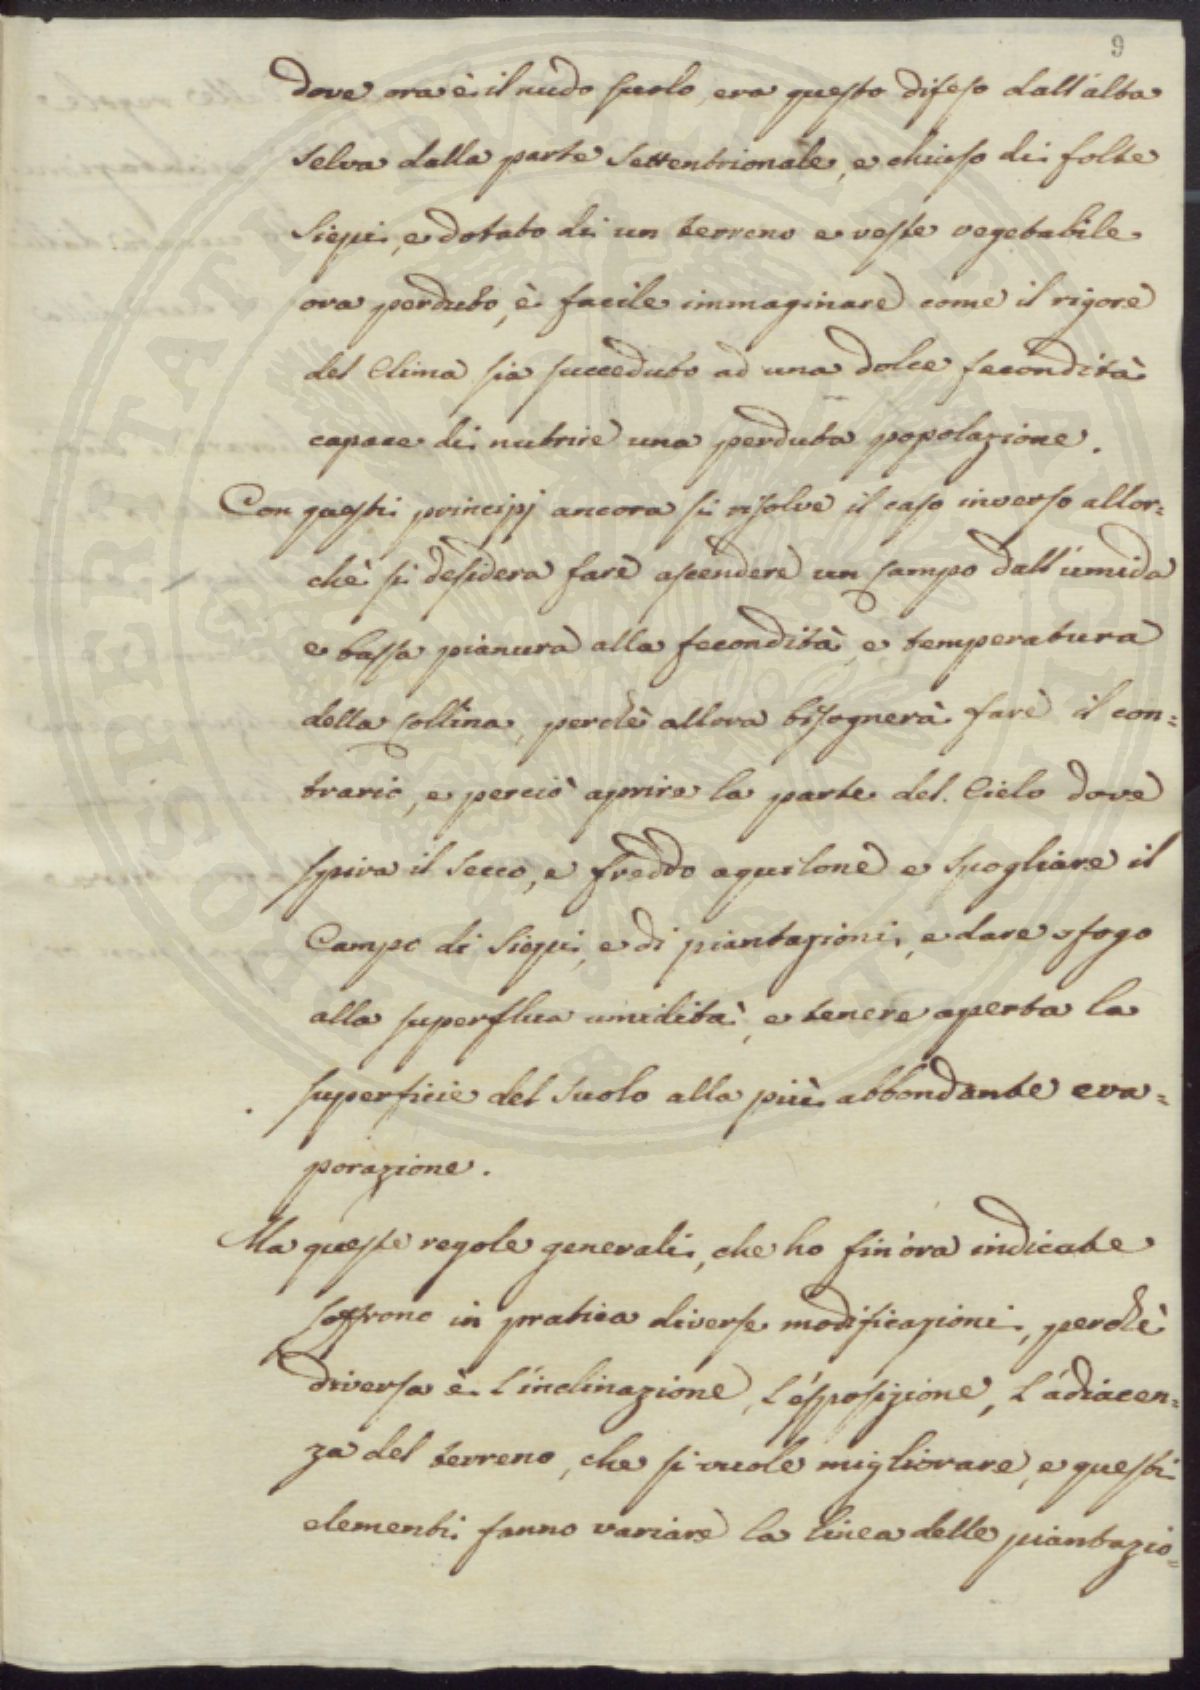 9
dove ora è il nudo suolo, era questo difeso dall'alta
selva dalla parte settentrionale, e chiuso di folte
siepi, e dotato di un terreno e veste vegetabile
ora perduto, è facile immaginare come il rigore
del Clima sia succeduto ad una dolce fecondità
capace di nutrire una perduta popolazione.
Con questi principj ancora si risolve il caso inverso allor=
chè si desidera fare ascendere un campo dall'umida
e bassa pianura alla fecondità, e temperatura
della collina, perchè allora bisognerà fare il con=
trario, e perciò aprire la parte del Cielo dove
spira il secco, e freddo aquilone e spogliare il
Campo di siepi, e di piantazioni, e dare sfogo
alla superflua umidità, e tenere aperta la
superficie del suolo alla più abbondante eva=
porazione.
Ma queste regole generali, che ho fin'ora indicate
soffrono in pratica diverse modificazioni, perchè
diversa è l'inclinazione, l'esposizione, l'adiacen=
za del terreno, che si vuole migliorare, e questi
elementi fanno variare la linea delle piantazio=
PROSPERITATI PUBLICAE AUGENDAE